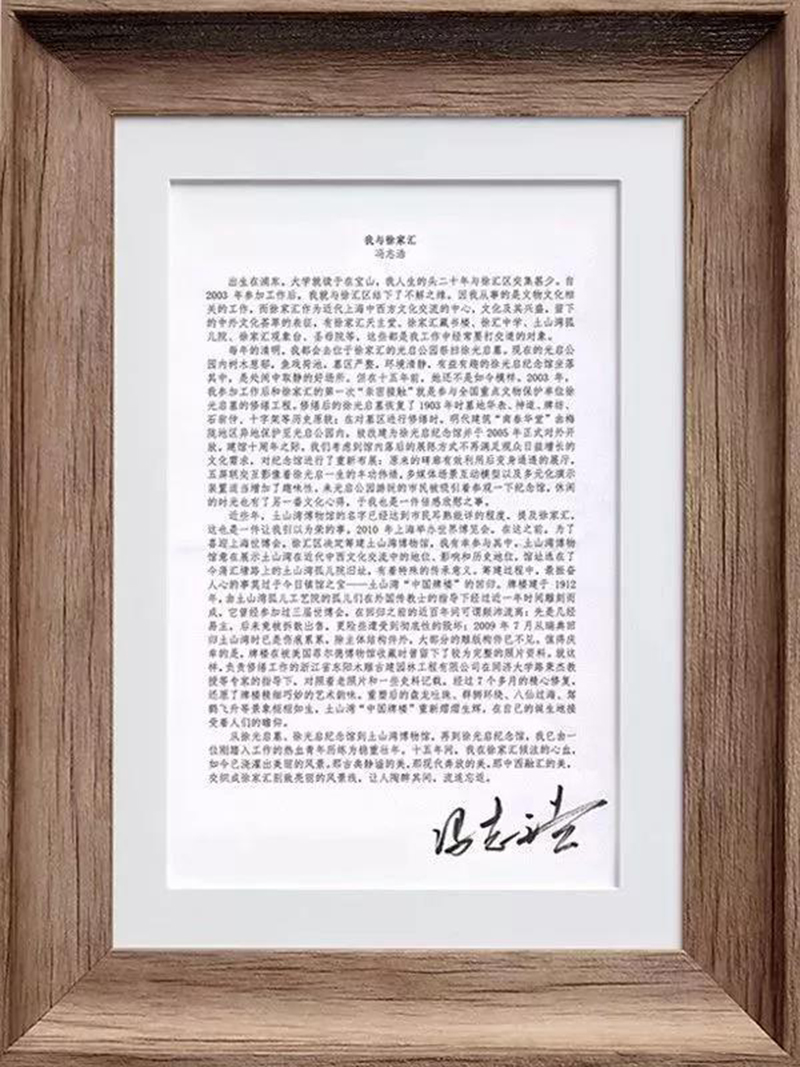 我与徐家汇
冯志浩
出生在浦东，大学就读于在宝山，我人生的头二十年与徐汇区交集甚少。自
2003 年参加工作后，我就与徐汇区结下了不解之缘。因我从事的是文物文化相
关的工作，而徐家汇作为近代上海中西方文化交流的中心，文化及其兴盛，留下
的中外文化荟萃的表征，有徐家汇天主堂、徐家汇藏书楼、徐汇中学、土山湾孤
儿院、徐家汇观象台、圣母院等，这些都是我工作中经常要打交道的对象。
每年的清明，我都会去位于徐家汇的光启公园祭扫徐光启墓。现在的光启公
园内树木葱郁，鱼戏荷池，墓区严整，环境清静，有益有趣的徐光启纪念馆坐落
其中，是处闹中取静的好场所。但在十五年前，她还不是如今模样。2003 年，
我参加工作后和徐家汇的第一次“亲密接触”就是参与全国重点文物保护单位徐
光启墓的修缮工程。修缮后的徐光启墓恢复了 1903 年时墓地华表、神道、牌坊、
石翁仲、十字架等历史原貌；在对墓区进行修缮时，明代建筑“南春华堂”由梅
陇地区异地保护至光启公园内，被改建为徐光启纪念馆并于 2005 年正式对外开
放。建馆十周年之际，我们考虑到馆内落后的展陈方式不再满足观众日益增长的
文化需求，对纪念馆进行了重新布展：原来的碑廊有效利用后变身通透的展厅，
五屏联交互影像着徐光启一生的丰功伟绩，多媒体场景互动模型以及多元化演示
装置适当增加了趣味性。来光启公园游玩的市民被吸引着参观一下纪念馆，休闲
的时光也有了另一番文化心得，于我也是一件倍感欣慰之事。
近些年，土山湾博物馆的名字已经达到市民耳熟能详的程度。提及徐家汇，
这也是一件让我引以为荣的事。2010 年上海举办世界博览会。在这之前，为了
喜迎上海世博会，徐汇区决定筹建土山湾博物馆，我有幸参与其中。土山湾博物
馆意在展示土山湾在近代中西文化交流中的地位、影响和历史地位，馆址选在了
今蒲汇塘路上的土山湾孤儿院旧址，有着特殊的传承意义。筹建过程中，最振奋
人心的事莫过于今日镇馆之宝——土山湾“中国牌楼”的回归。牌楼建于 1912
年，由土山湾孤儿工艺院的孤儿们在外国传教士的指导下经过近一年时间雕刻而
成，它曾经参加过三届世博会。在回归之前的近百年间可谓颠沛流离：先是几经
易主，后来竟被拆散出售，更险些遭受到彻底性的毁坏；2009 年 7 月从瑞典回
归土山湾时已是伤痕累累，除主体结构件外，大部分的雕版构件已不见。值得庆
幸的是，牌楼在被美国菲尔德博物馆收藏时曾留下了较为完整的照片资料。就这
样，负责修缮工作的浙江省东阳木雕古建园林工程有限公司在同济大学路秉杰教
授等专家的指导下，对照着老照片和一些史料记载，经过 7 个多月的精心修复，
还原了牌楼精细巧妙的艺术韵味。重塑后的盘龙吐珠、群狮环绕、八仙过海、鸳
鹤飞升等景象栩栩如生，土山湾“中国牌楼”重新熠熠生辉，在自己的诞生地接
受着人们的瞻仰。
从徐光启墓、徐光启纪念馆到土山湾博物馆，再到徐光启纪念馆，我已由一
位刚踏入工作的热血青年历练为稳重壮年。十五年间，我在徐家汇倾注的心血，
如今已浇灌出美丽的风景，那古典静谧的美，那现代奔放的美，那中西融汇的美，
交织成徐家汇别致亮丽的风景线，让人陶醉其间，流连忘返。
冯志浩